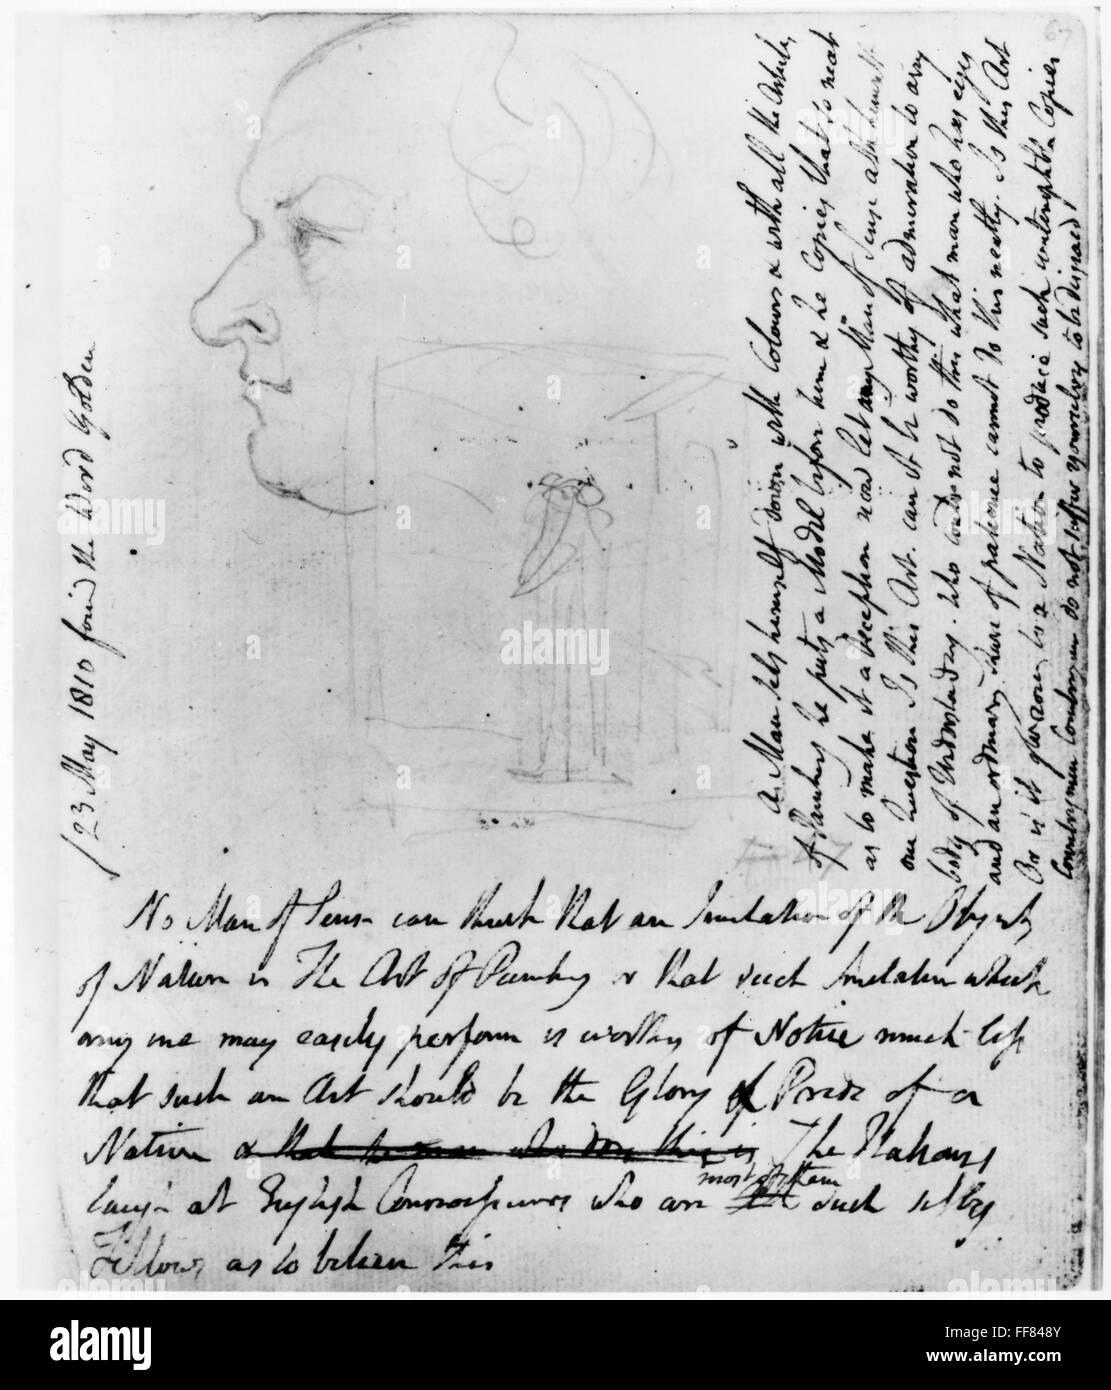 67
23 May 1810 found the Word Golden
A Man sets himself down with Colours & with all the Articles
of Painting he puts a Model before him & he copies that so neat
as to make it a Deception now let any Man of Sense ask himself
one Question Is this Art. can it be worthy of admiration to any
body of Understanding. Who could not do this what man who has eyes
and an ordinary share of patience cannot do this neatly. Is this Art
Or is it glorious to a Nation to produce such contemptible Copies
Countrymen Countrymen do not suffer yourselves to be disgracd
No Man of Sense can think that an Imitation of the Objects
of Nature is The Art of Painting or that such Imitation which
any one may easily perform is worthy of Notice much less
that such an Art should be the Glory & Pride of a
Nation & that the man who does this is The Italians
laugh at English Connoisseurs who are most of them such silly
Fellows as to believe this
alamy
alamy
Image ID: FF848Y
www.alamy.com